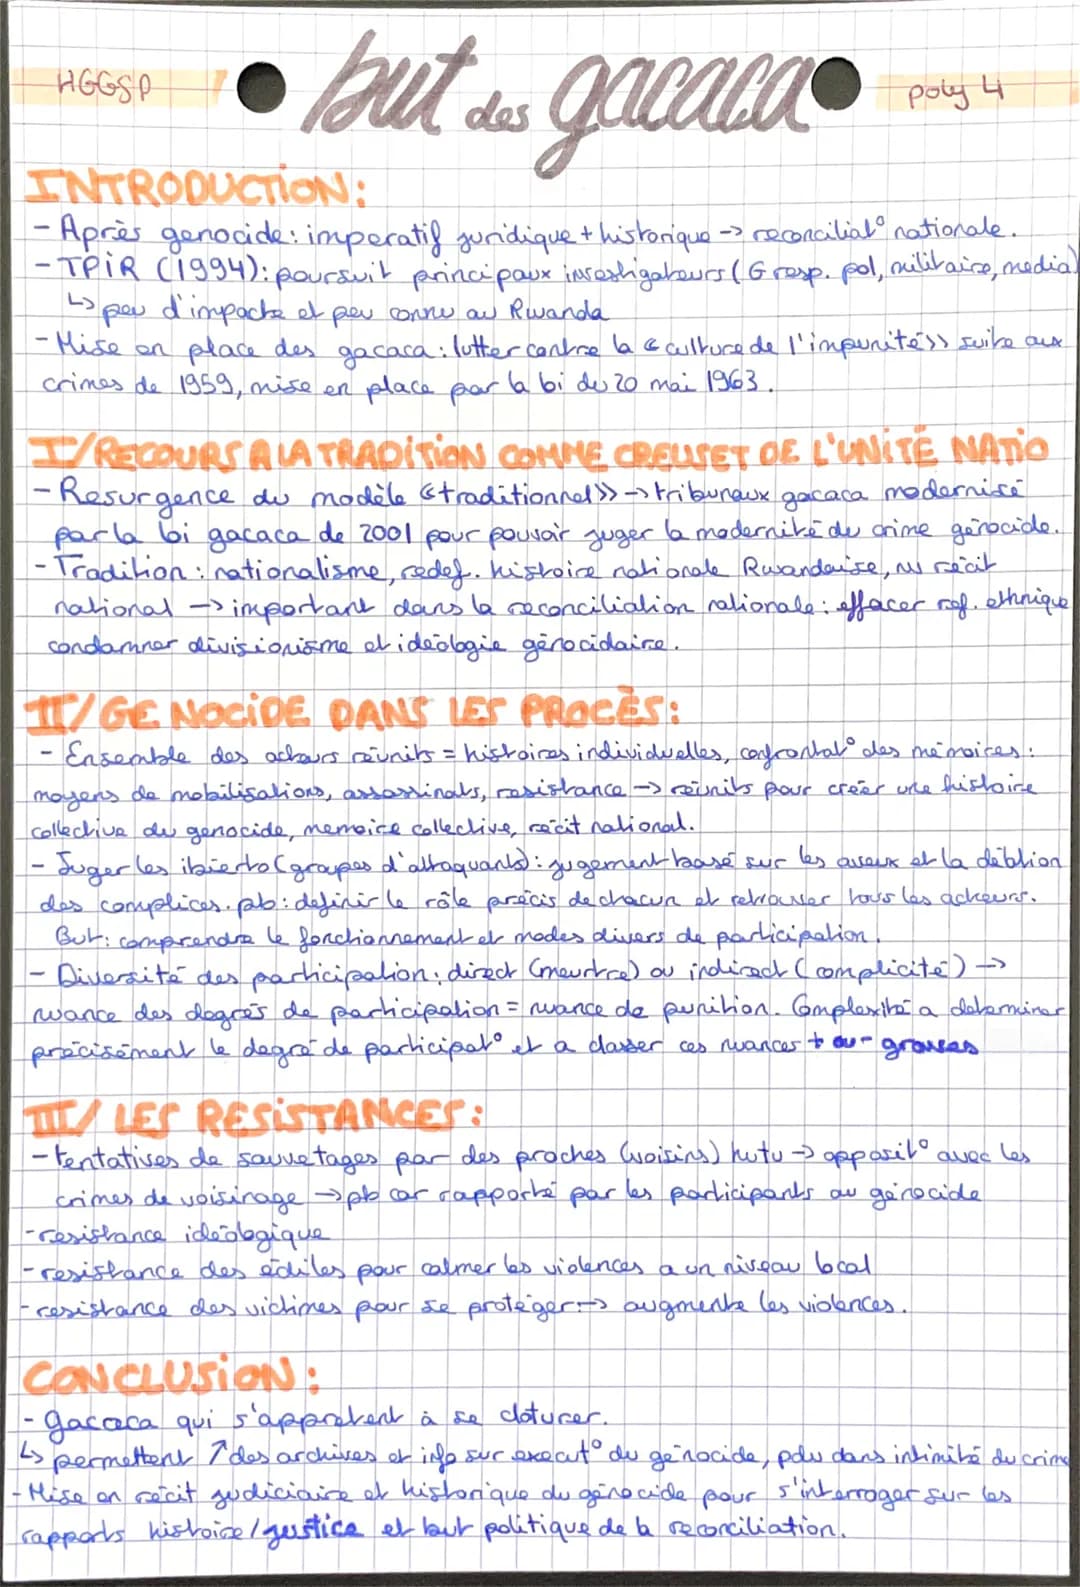 HGGSP
but des gacaca
poly 4
INTRODUCTION:
- Après genocide: imperatif juridique + historique -> reconciliat° nationale.
- TPIR (1994): poursuit principaux investigateurs (G resp. pol, militaire, media)
↳ peu d'impacte et peu connu au Rwanda
- Mise en place des gacaca: lutter contre la « culture de l'impunité» suite aux
crimes de 1959, mise en place par la loi du 20 mai 1963.
I/ RECOURS A LA TRADITION COMME CREUSET DE L'UNITÉ NATIO
- Resurgence du modèle «traditionnel» -> tribunaux gacaca modernisé
par la loi gacaca de 2001 pour pouvoir juger la modernité du crime génocide.
- Tradition: nationalisme, redef. histoire nationale Rwandaise, nv récit
national -> important dans la reconciliation nationale: effacer ref. ethnique
condamner divisionisme et idéologie génocidaire.
II/ GENOCIDE DANS LES PROCÈS:
- Ensemble des acteurs réunits = histoires individuelles, confrontat° des mémoires:
moyens de mobilisations, assassinats, resistance -> réunits pour créer une histoire
collective du genocide, memoire collective, récit national.
- Juger les ibiterto (groupes d'attaquants): jugement basé sur les aveux et la délation
des complices. pb: definir le rôle précis de chacun et retrouver tous les acteurs.
But: comprendre le fonctionnement et modes divers de participation.
- Diversité des participation: direct (meurtre) ou indirect (complicité) ->
nuance des degrés de participation = nuance de punition. Complexité a determiner
précisément le degré de participat° et a classer ces nuances + ou - graves
III/ LES RESISTANCES:
- tentatives de sauvetages par des proches (voisins) hutu -> opposit° avec les
crimes de voisinage -> pb car rapporté par les participants au génocide
- resistance idéologique
- resistance des édiles pour calmer les violences a un niveau local
- resistance des victimes pour se protéger -> augmente les violences.
CONCLUSION:
- gacaca qui s'appretent à se cloturer.
↳ permettent ↗ des archives et info sur execut° du génocide, pdv dans intimité du crime
- Mise en récit judiciaire et historique du génocide pour s'interroger sur les
rapports histoire/justice et but politique de la reconciliation.